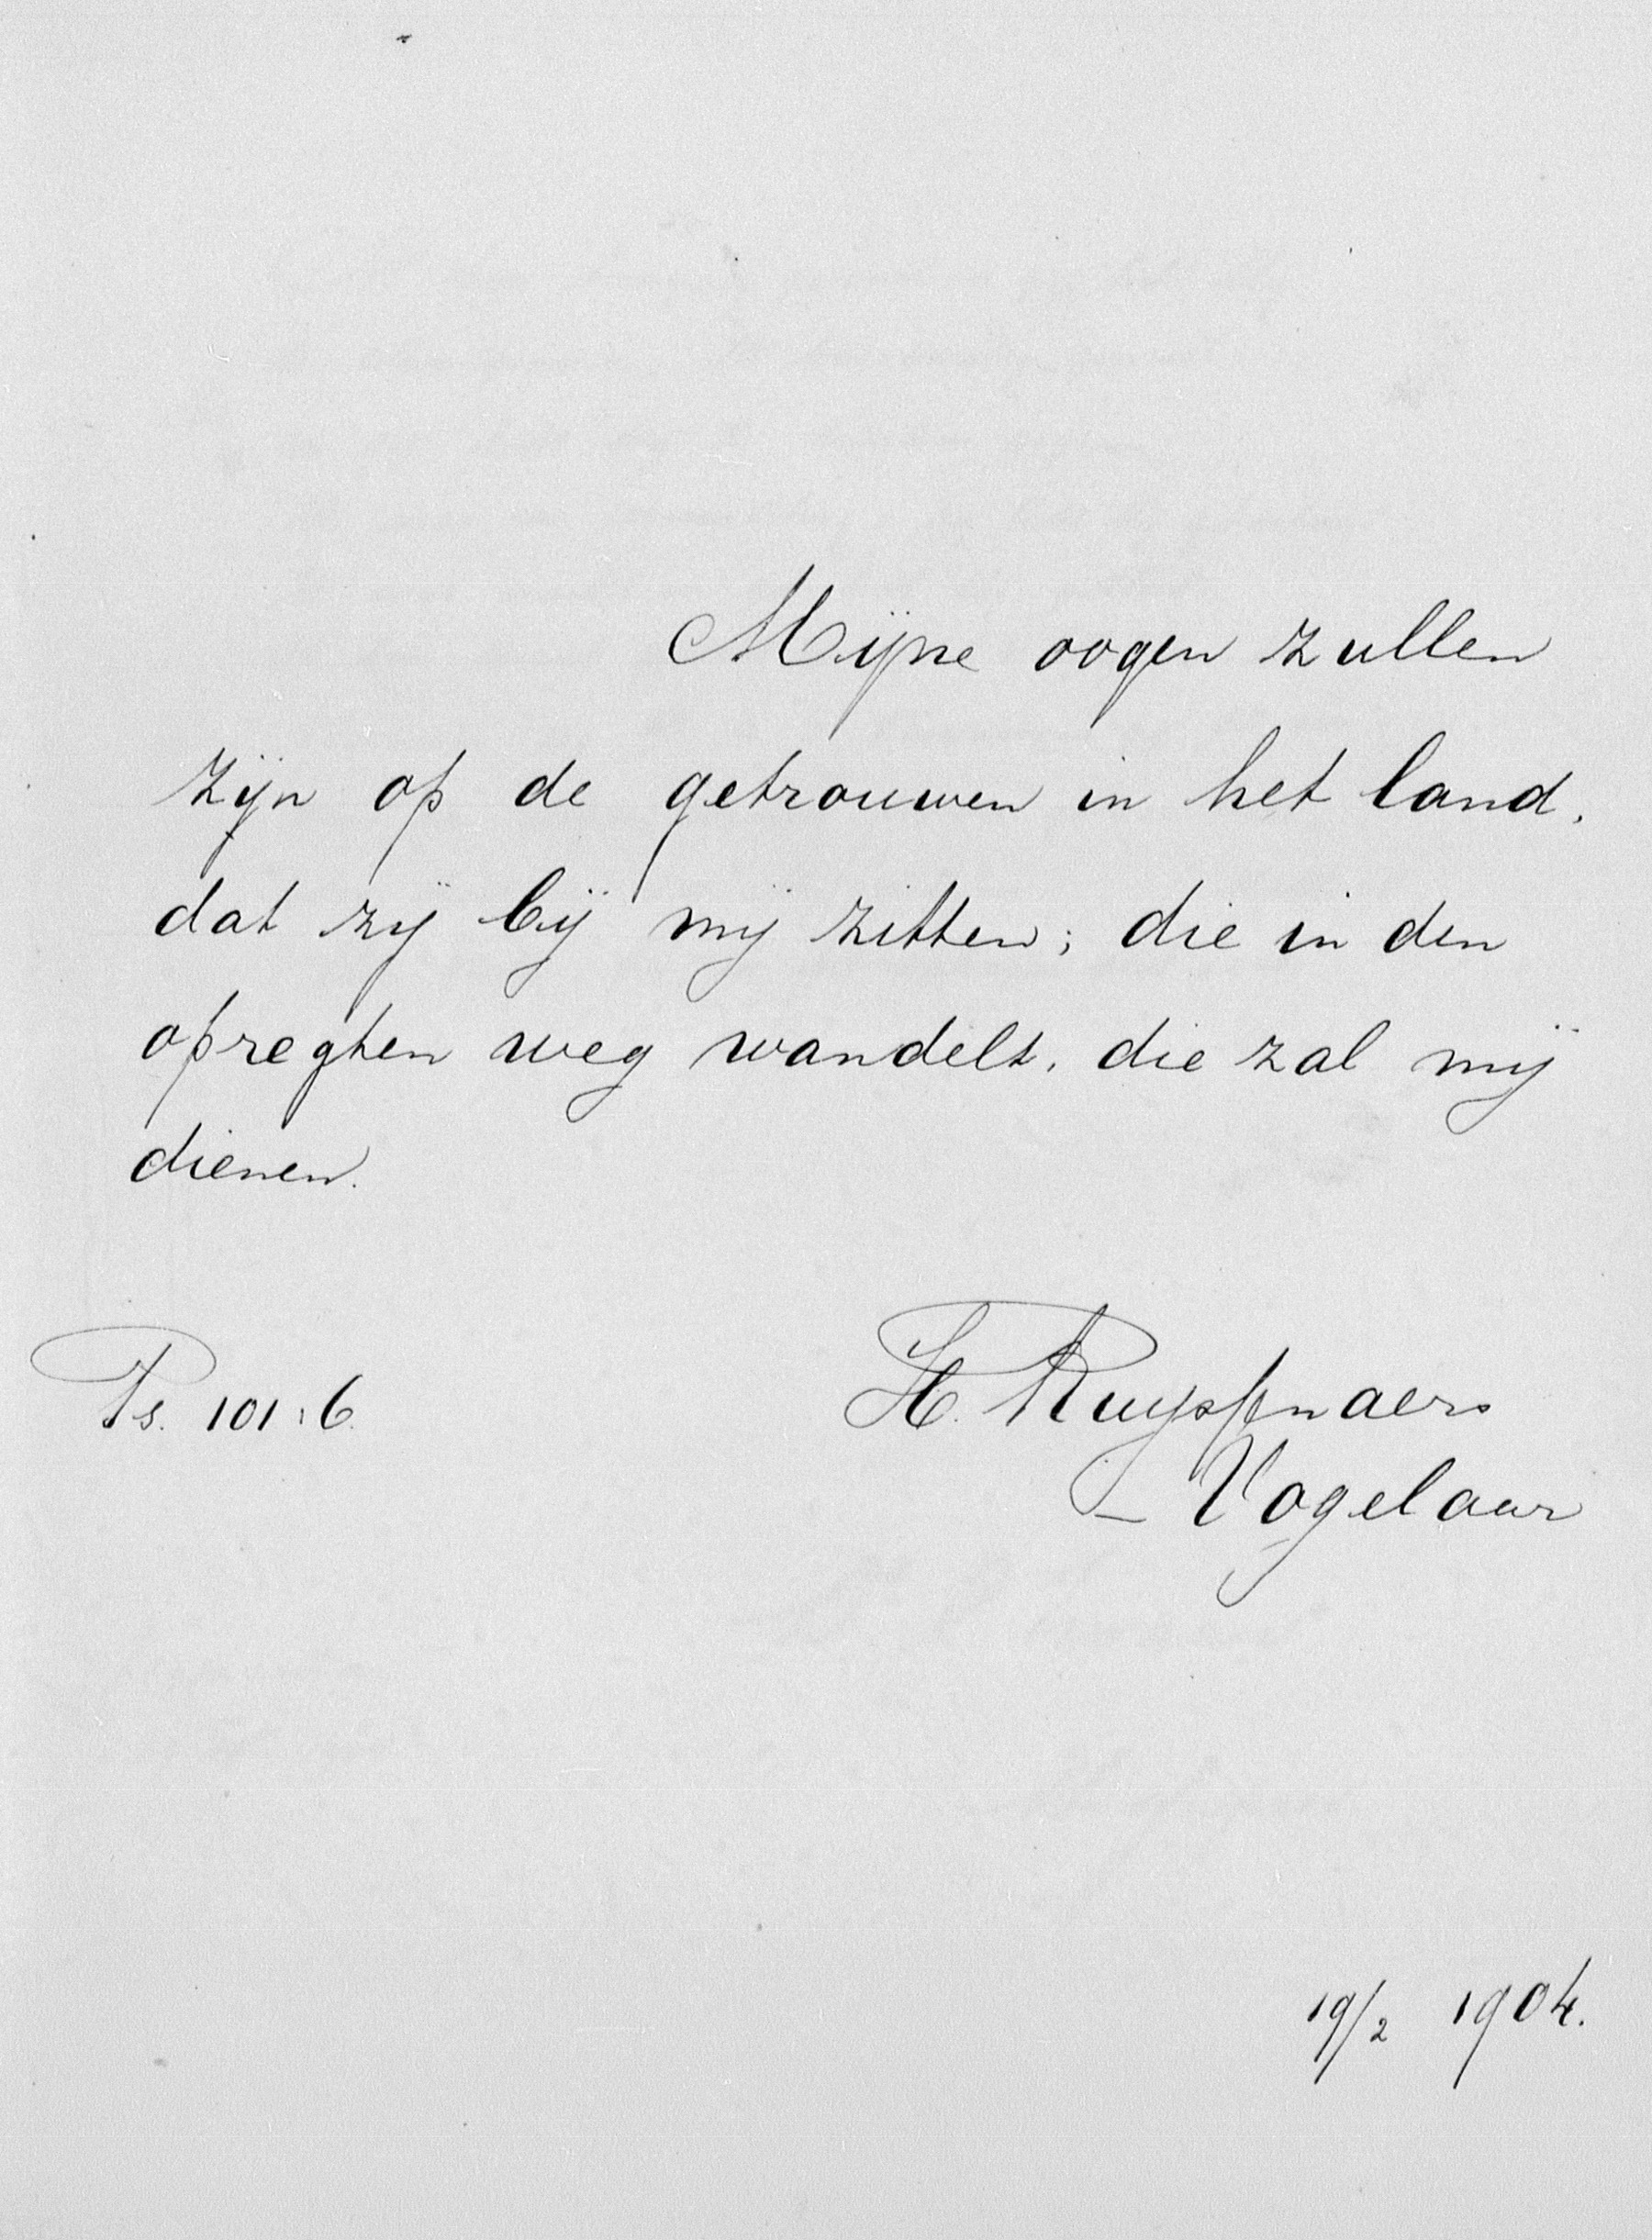 Mijne oogen zullen
zijn op de getrouwen in het land,
dat zij bij mij zitten; die in den
opregten weg wandelt, die zal mij
dienen.
Ps. 101:6.
H. Ruyssenaers
- Vogelaar
19/2 1904.